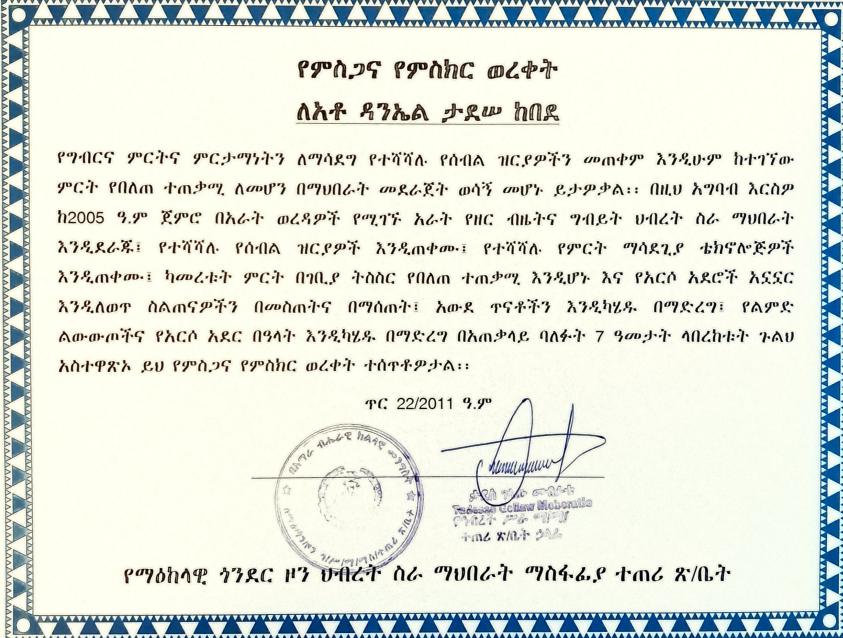 የምስጋና የምስክር ወረቀት
ለአቶ ዳንኤል ታደሠ ከበደ
የግብርና ምርትና ምርታማነትን ለማሳደግ የተሻሻሉ የሰብል ዝርያዎችን መጠቀም እንዲሁም ከተገኘው
ምርት የበለጠ ተጠቃሚ ለመሆን በማህበራት መደራጀት ወሳኝ መሆኑ ይታዎቃል፡፡ በዚህ አግባብ እርስዎ
ከ2005 ዓ.ም ጀምሮ በአራት ወረዳዎች የሚገኙ አራት የዘር ብዜትና ግብይት ህብረት ስራ ማህበራት
እንዲደራጁ፤ የተሻሻሉ የሰብል ዝርያዎች እንዲጠቀሙ፤ የተሻሻሉ የምርት ማሳደጊያ ቴክኖሎጅዎች
እንዲጠቀሙ፤ ካመረቱት ምርት በገቢያ ትስስር የበለጠ ተጠቃሚ እንዲሆኑ እና የአርሶ አደሮች አኗኗር
እንዲለወጥ ስልጠናዎችን በመስጠትና በማሰጠት፤ አውደ ጥናቶችን እንዲካሄዱ በማድረግ፤ የልምድ
ልውውጦችና የአርሶ አደር በዓላት እንዲካሄዱ በማድረግ በአጠቃላይ ባለፉት 7 ዓመታት ላበረከቱት ጉልህ
አስተዋጽኦ ይህ የምስጋና የምስክር ወረቀት ተሰጥቶዎታል፡፡
ጥር 22/2011 ዓ.ም
በአማራ ብሔራዊ ክልላዊ መንግስት
Tadesse
ተጠሪ ጽ/ቤት ኃላፊ
የማዕከላዊ ጎንደር ዞን ህብረት ስራ ማህበራት ማስፋፊያ ተጠሪ ጽ/ቤት